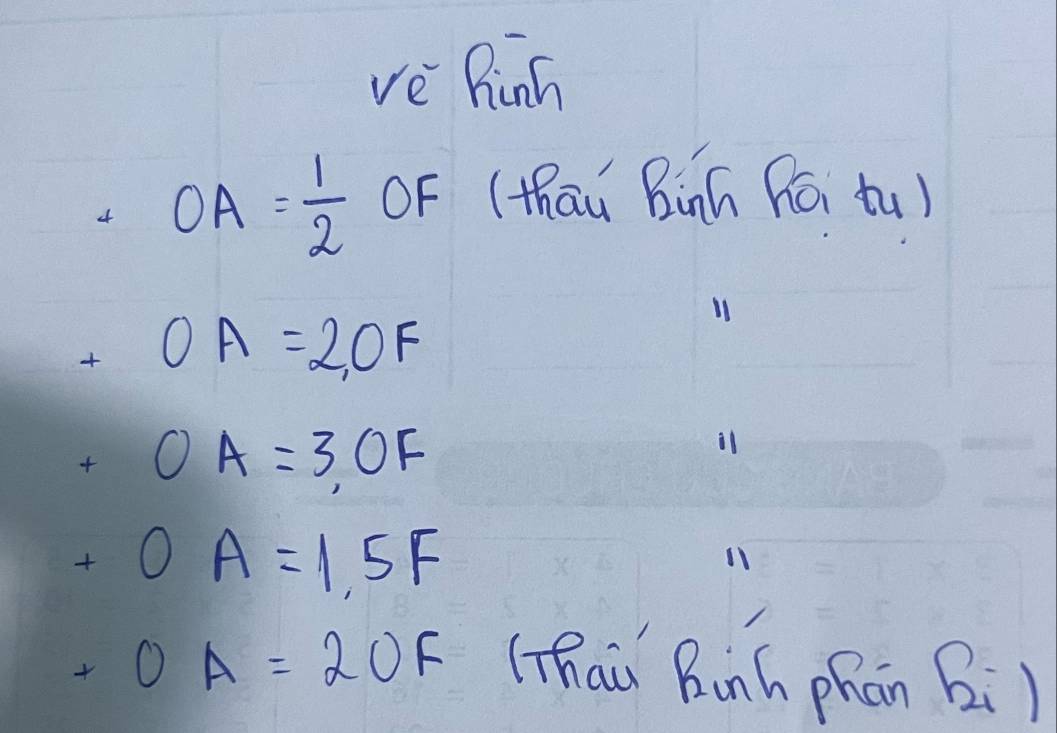 vẽ hình
+ OA = 1/2 OF (thấu kính hội tụ)
+ OA = 2,OF "
+ OA = 3,OF "
+ OA = 1,5F "
+ OA = 2OF (Thấu kính phân kì)